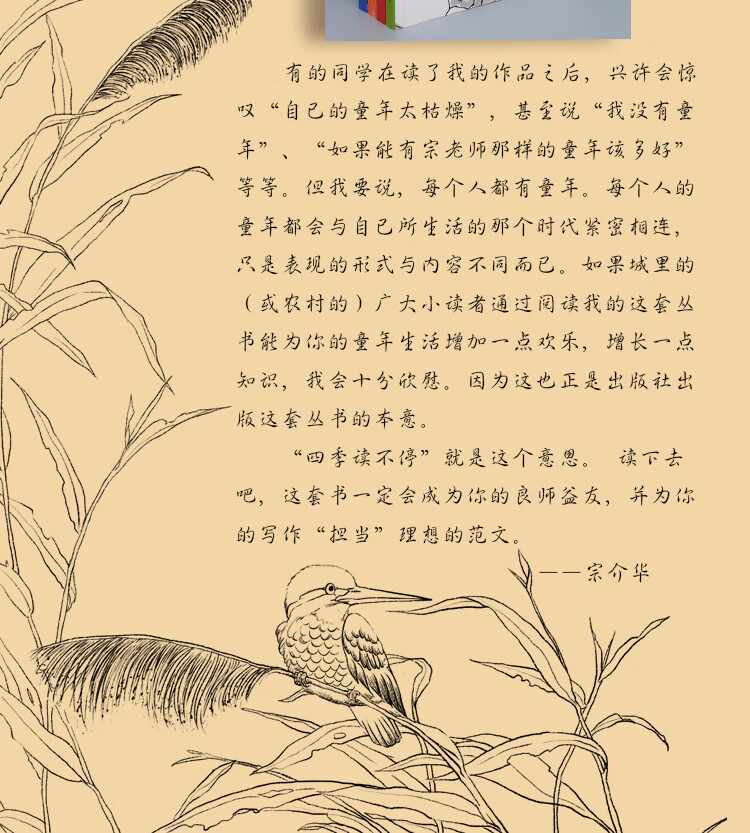 有的同学在读了我的作品之后，兴许会惊
叹“自己的童年太枯燥”，甚至说“我没有童
年”、“如果能有宗老师那样的童年该多好”
等等。但我要说，每个人都有童年。每个人的
童年都会与自己所生活的那个时代紧密相连，
只是表现的形式与内容不同而已。如果城里的
（或农村的）广大小读者通过阅读我的这套丛
书能为你的童年生活增加一点欢乐，增长一点
知识，我会十分欣慰。因为这也正是出版社出
版这套丛书的本意。
“四季读不停”就是这个意思。 读下去
吧，这套书一定会成为你的良师益友，并为你
的写作“担当”理想的范文。
——宗介华